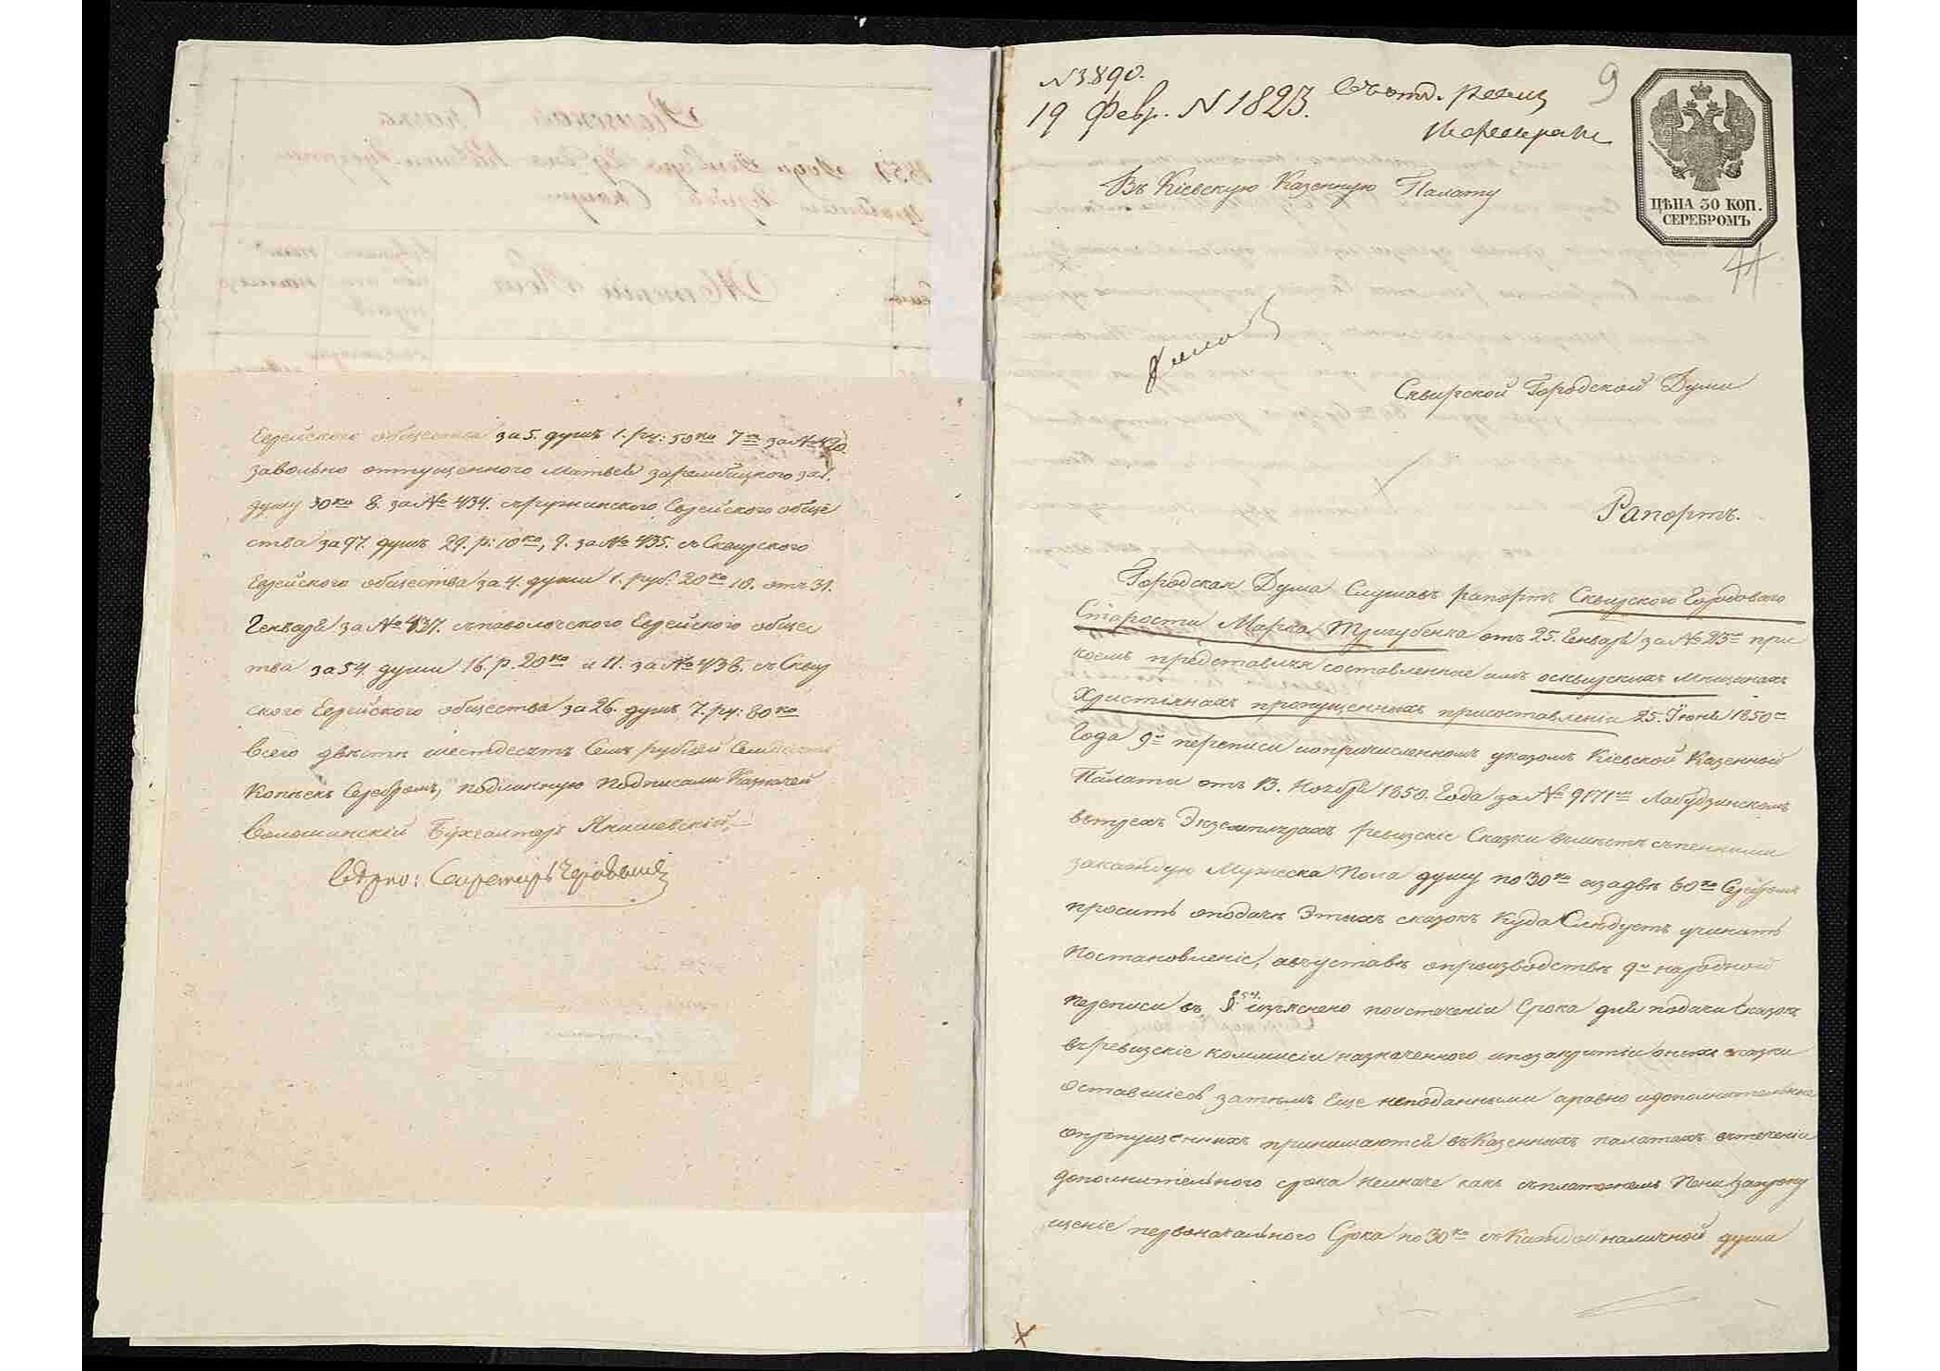 Еврейского общества за 5. душъ 1. ру: 50 ко 7 за №
завольно отпущенного Матвей за 1.
душу 30 ко 8. за № 434. съ Ружинского Еврейского обще
ства за 97. душъ 29. р: 10 ко, 9. за № 435. съ Сквирского
Еврейского общества за 4. души 1. руб. 20 ко 10. отъ 31.
Генваря за № 437. съ паволочского Еврейского общес
тва за 54 души 16. р. 20 ко и 11. за № 438. съ Сквир
ского Еврейского общества за 26. душъ 7. ру: 80 ко
всего двѣсти шестдесятъ Семь рублей Семдесятъ
Копѣекъ Серебромъ, подлинную подписали Казначей
Волошинскій Бухгалтеръ Янишевскій,
Вѣрно: Секретарь
№ 3890.
19 Февр. № 1823.
9
ЦѢНА 30 КОП.
СЕРЕБРОМЪ
Въ Кіевскую Казенную Палату
Сквирской Городской Думы
Рапортъ.
Городская Дума Слушавъ рапортъ Сквирского Городоваго
Старосты Марка Тригубенка отъ 25. Генваря за № 23 при
коемъ представляя составленные имъ о сквирскихъ Мещанахъ
Христіянахъ пропущенныхъ при составленіи 25. Іюня 1850
Года 9й переписи и о причисленномъ указомъ Кіевской Казенной
Палаты отъ 13. Ноября 1850. Года за № 9171 Лабудзинскомъ
въ трехъ Экземплярахъ ревизскіе Сказки вместѣ съ пенными
за каждую Мужеска Пола душу по 30 ко а за двѣ 60 ко Серебромъ
просить о подачѣ Этихъ сказокъ Куда Слѣдуетъ учинить
Постановленіе, а въ уставѣ о производствѣ 9й народной
переписи въ §. 54. изъяснено по истеченіи Срока для подачи Сказокъ
въ ревизскіе коммисіи назначенного и по закрытіи оныхъ сказки
оставшіеся за тѣмъ Еще неподанными а равно и дополнительные
о пропущенныхъ принимаются въ Казенныхъ палатахъ въ теченіи
дополнительного срока неиначе какъ съ платежемъ Пени за пропу
щеніе первоначального Срока по 30 ко съ Каждой наличной души